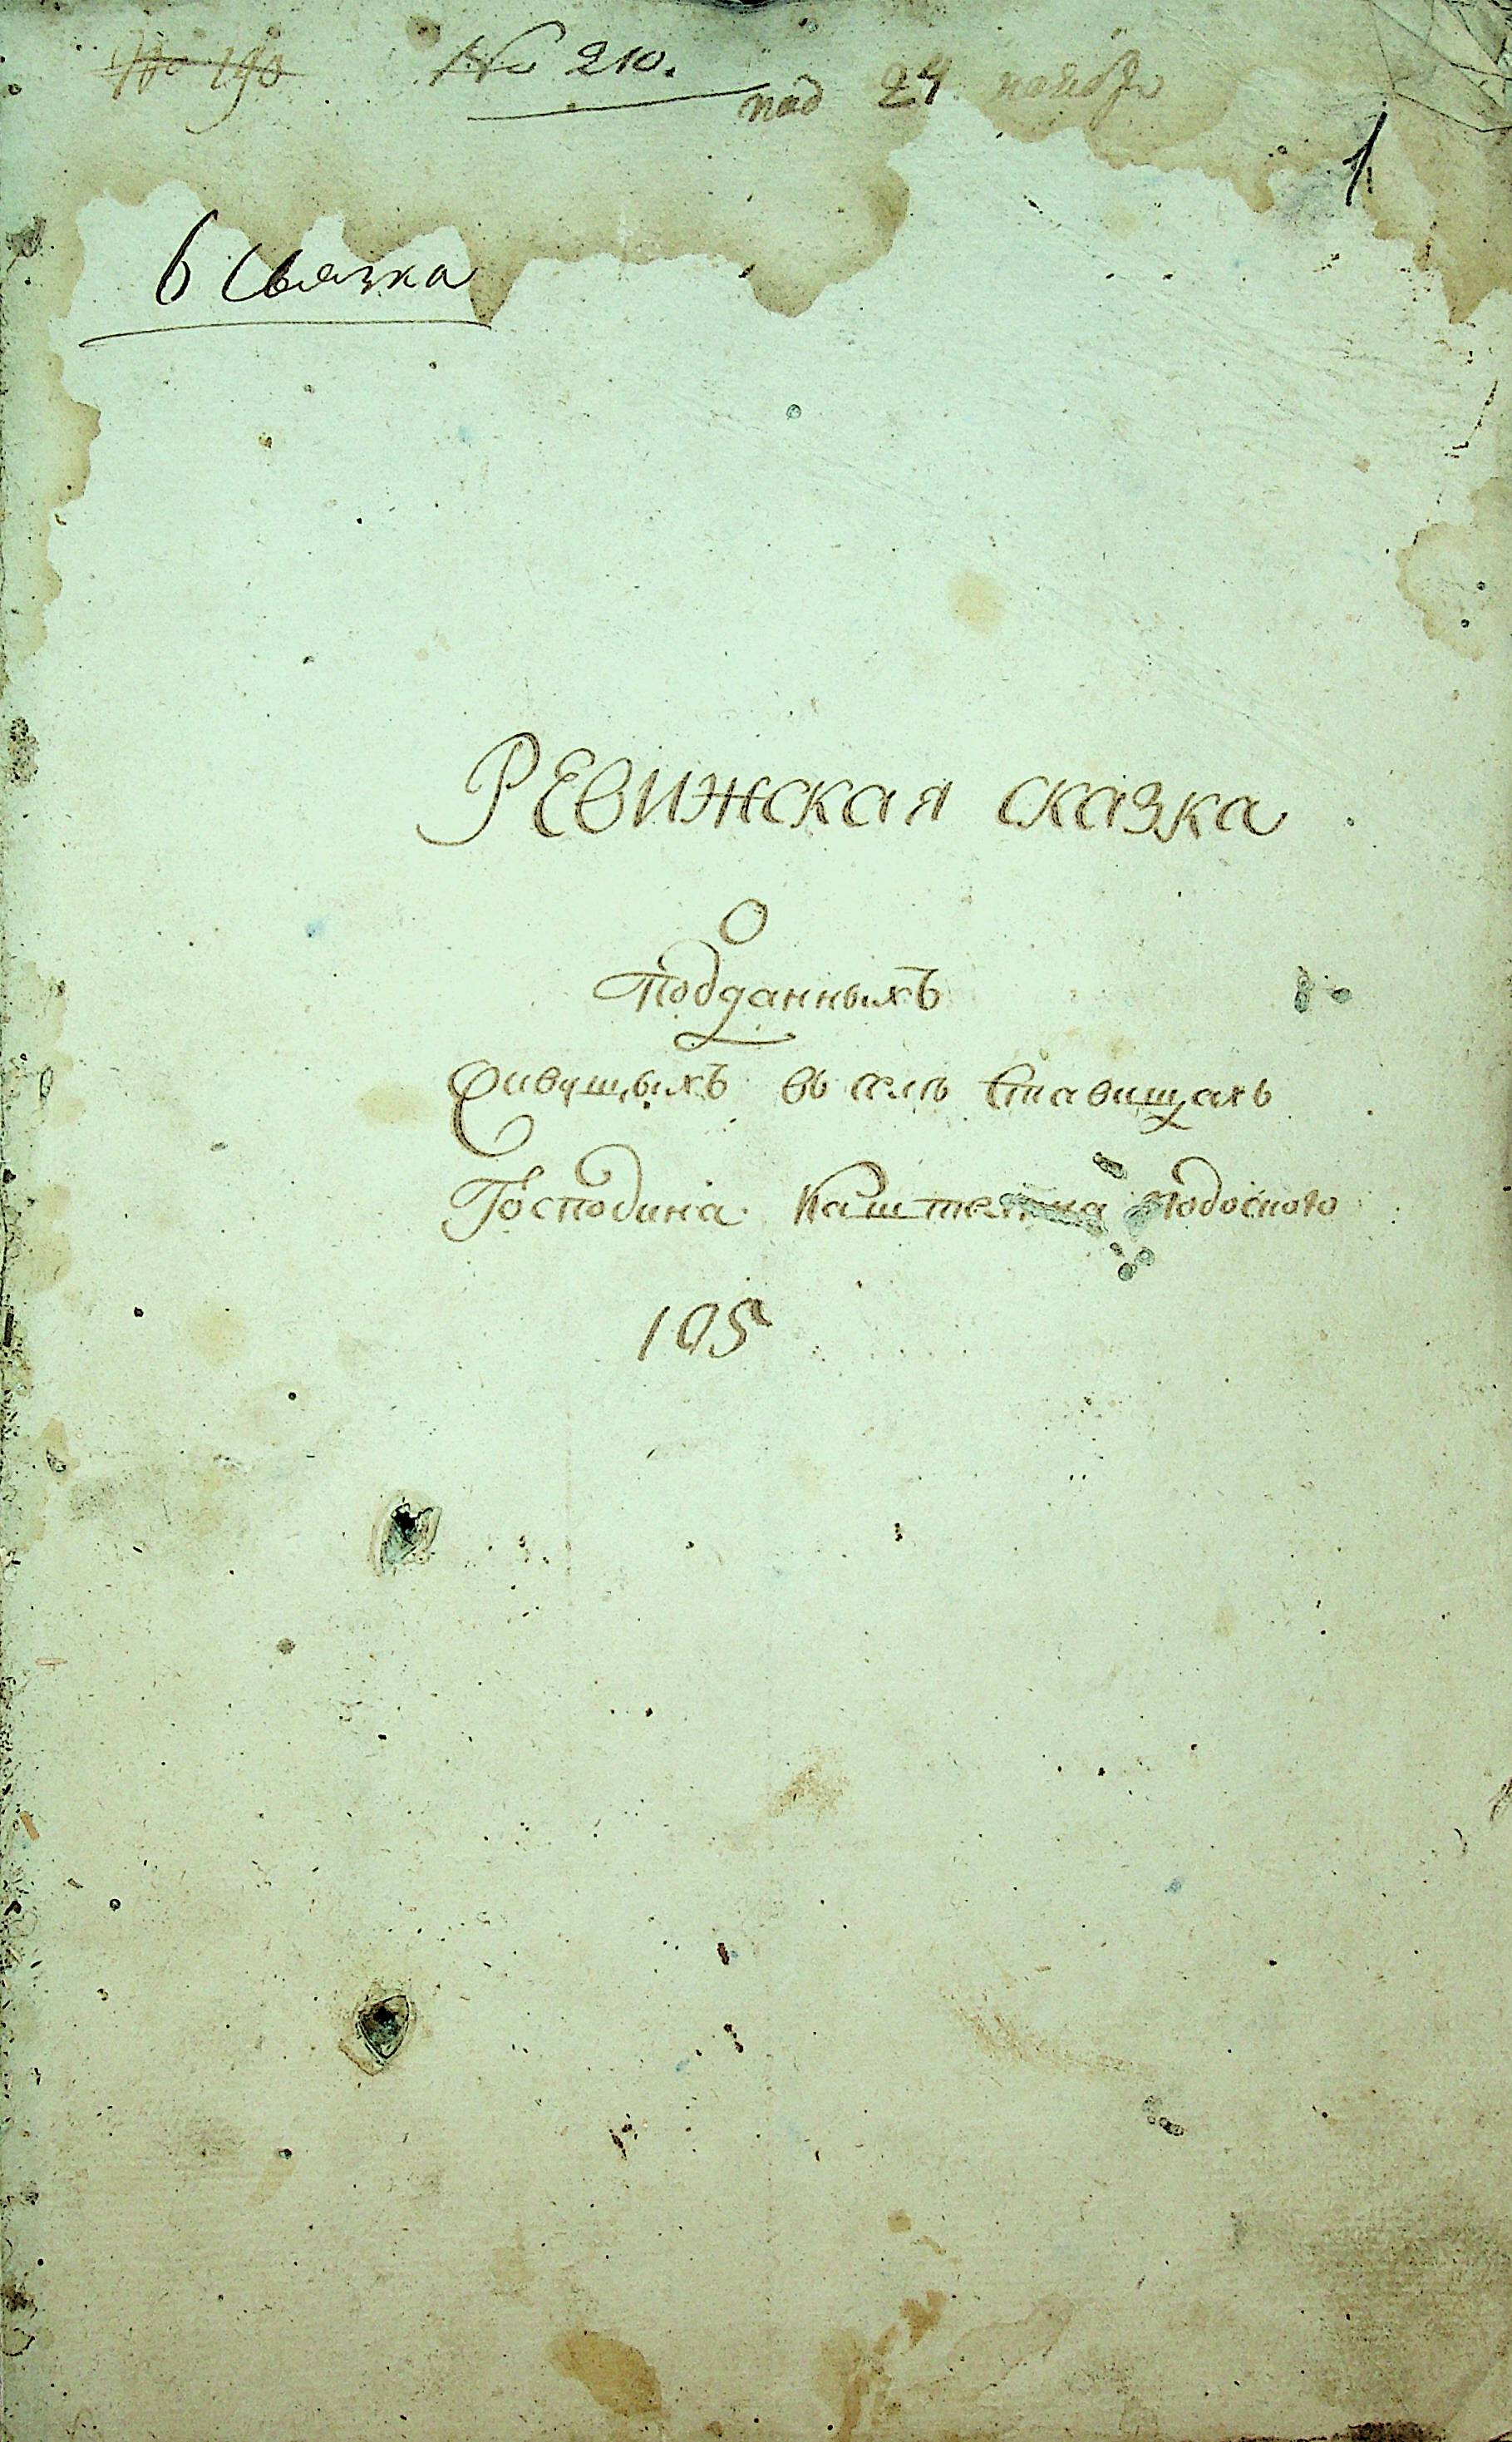 № 190 № 210.
под 24 ноября
1
6 Связка
РЕВИЖСКАЯ СКАЗКА
О
Подданныхъ
Живущыхъ въ селѣ Ставищахъ
Господина Каштеляна Подоского
105